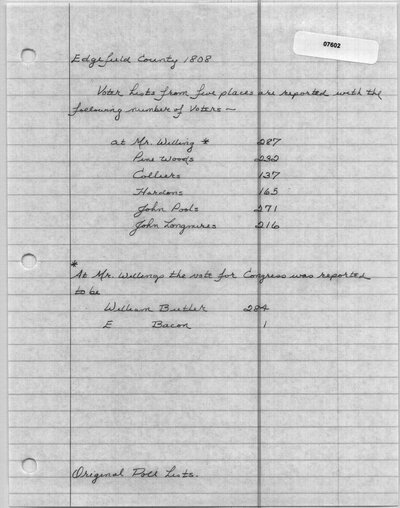 07602
Edgefield County 1808
Voter Lists from five places are reported with the
following number of Voters ~
at Mr. Willing * 287
Pine Woods 232
Colliers 137
Hardens 165
John Pools 271
John Longmires 216
*
At Mr. Willings the vote for Congress was reported
to be
William Butler 284
E Bacon 1
Original Poll Lists.